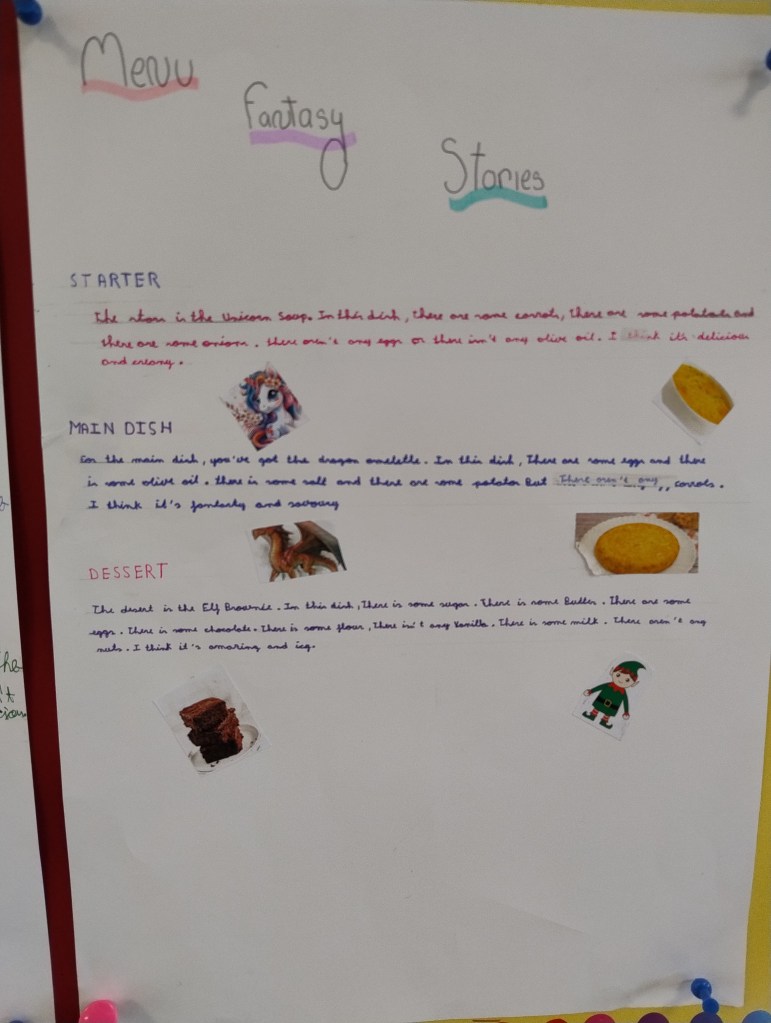 Menu
Fantasy
Stories
STARTER
The stars is the Unicorn Soup. In this dish, there are some carrots, there are some potatoes and
there are some onions. there aren't any eggs or there isn't any olive oil. I think it's delicious
and creamy.
MAIN DISH
For the main dish, you've got the dragon omelette. In this dish, There are some eggs and there
is some olive oil. there is some salt and there are some potatos But There aren't any, carrots.
I think it's and savoury
DESSERT
The desert is the Elf Brownie. In this dish, There is some sugar. There is some Butter. There are some
eggs. There is some chocolate. There is some flour, There isn't any Vanilla. There is some milk. There aren't any
nuts. I think it's amazing and
the
't